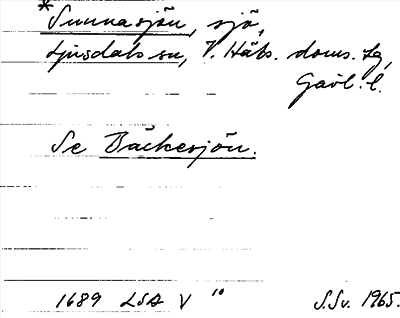 *Sunnasjön, sjö,
Ljusdals sn, V. Häls. doms. tg,
Gävl. l.
Se Bäckesjön.
1689 LSA V 10 S.Sv. 1965.